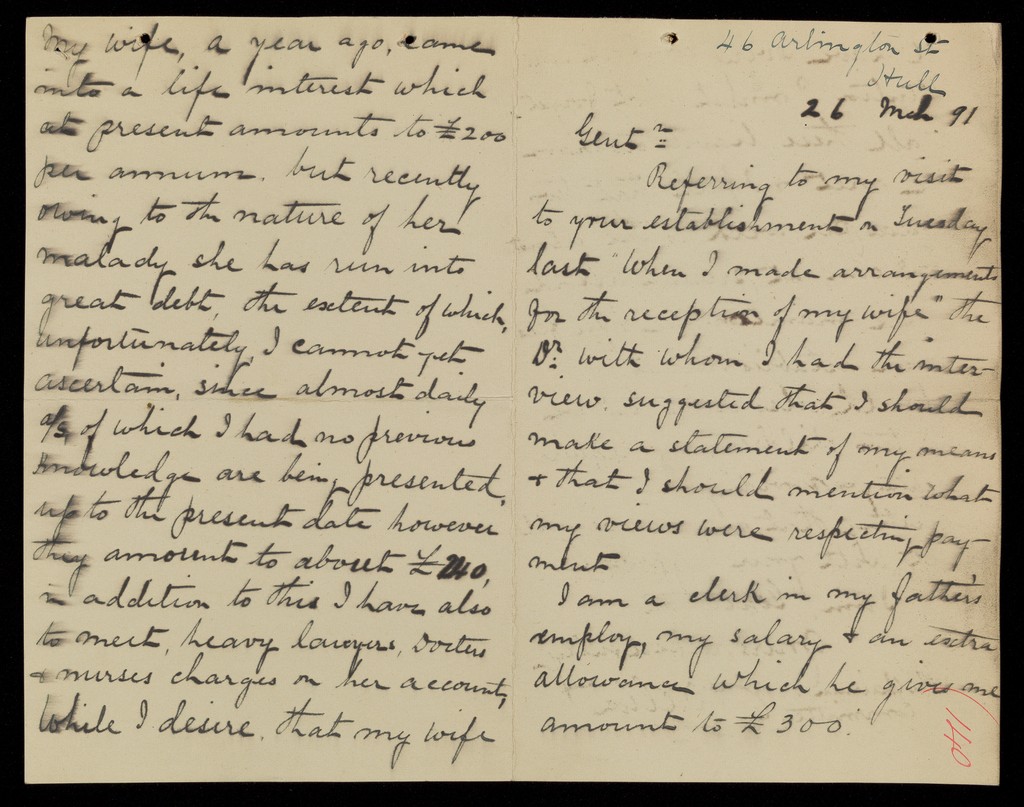 46 Arlington St
Hull
26 Mch 91
Gentn
Referring to my visit
to your establishment on Tuesday
last "When I made arrangements
for the reception of my wife" the
Dr. with whom I had the inter-
view. suggested that, I should
make a statement of my means
+ that I should mention what
my views were respecting pay-
ment
I am a clerk in my father's
employ, my salary + an extra
allowance which he gives me
amount to £300.
140
My wife, a year ago, came
into a life interest which
at present amounts to £200
per annum. but recently
owing to the nature of her
malady she has run into
great debt, the extent of which,
unfortunately, I cannot yet
ascertain, since almost daily
a/cs of which I had no previous
knowledge are being presented,
up to the present date however
they amount to about £240,
in addition to this I have also
to meet, heavy lawyers, Doctors
+ nurses charges on her account,
While I desire. that my wife